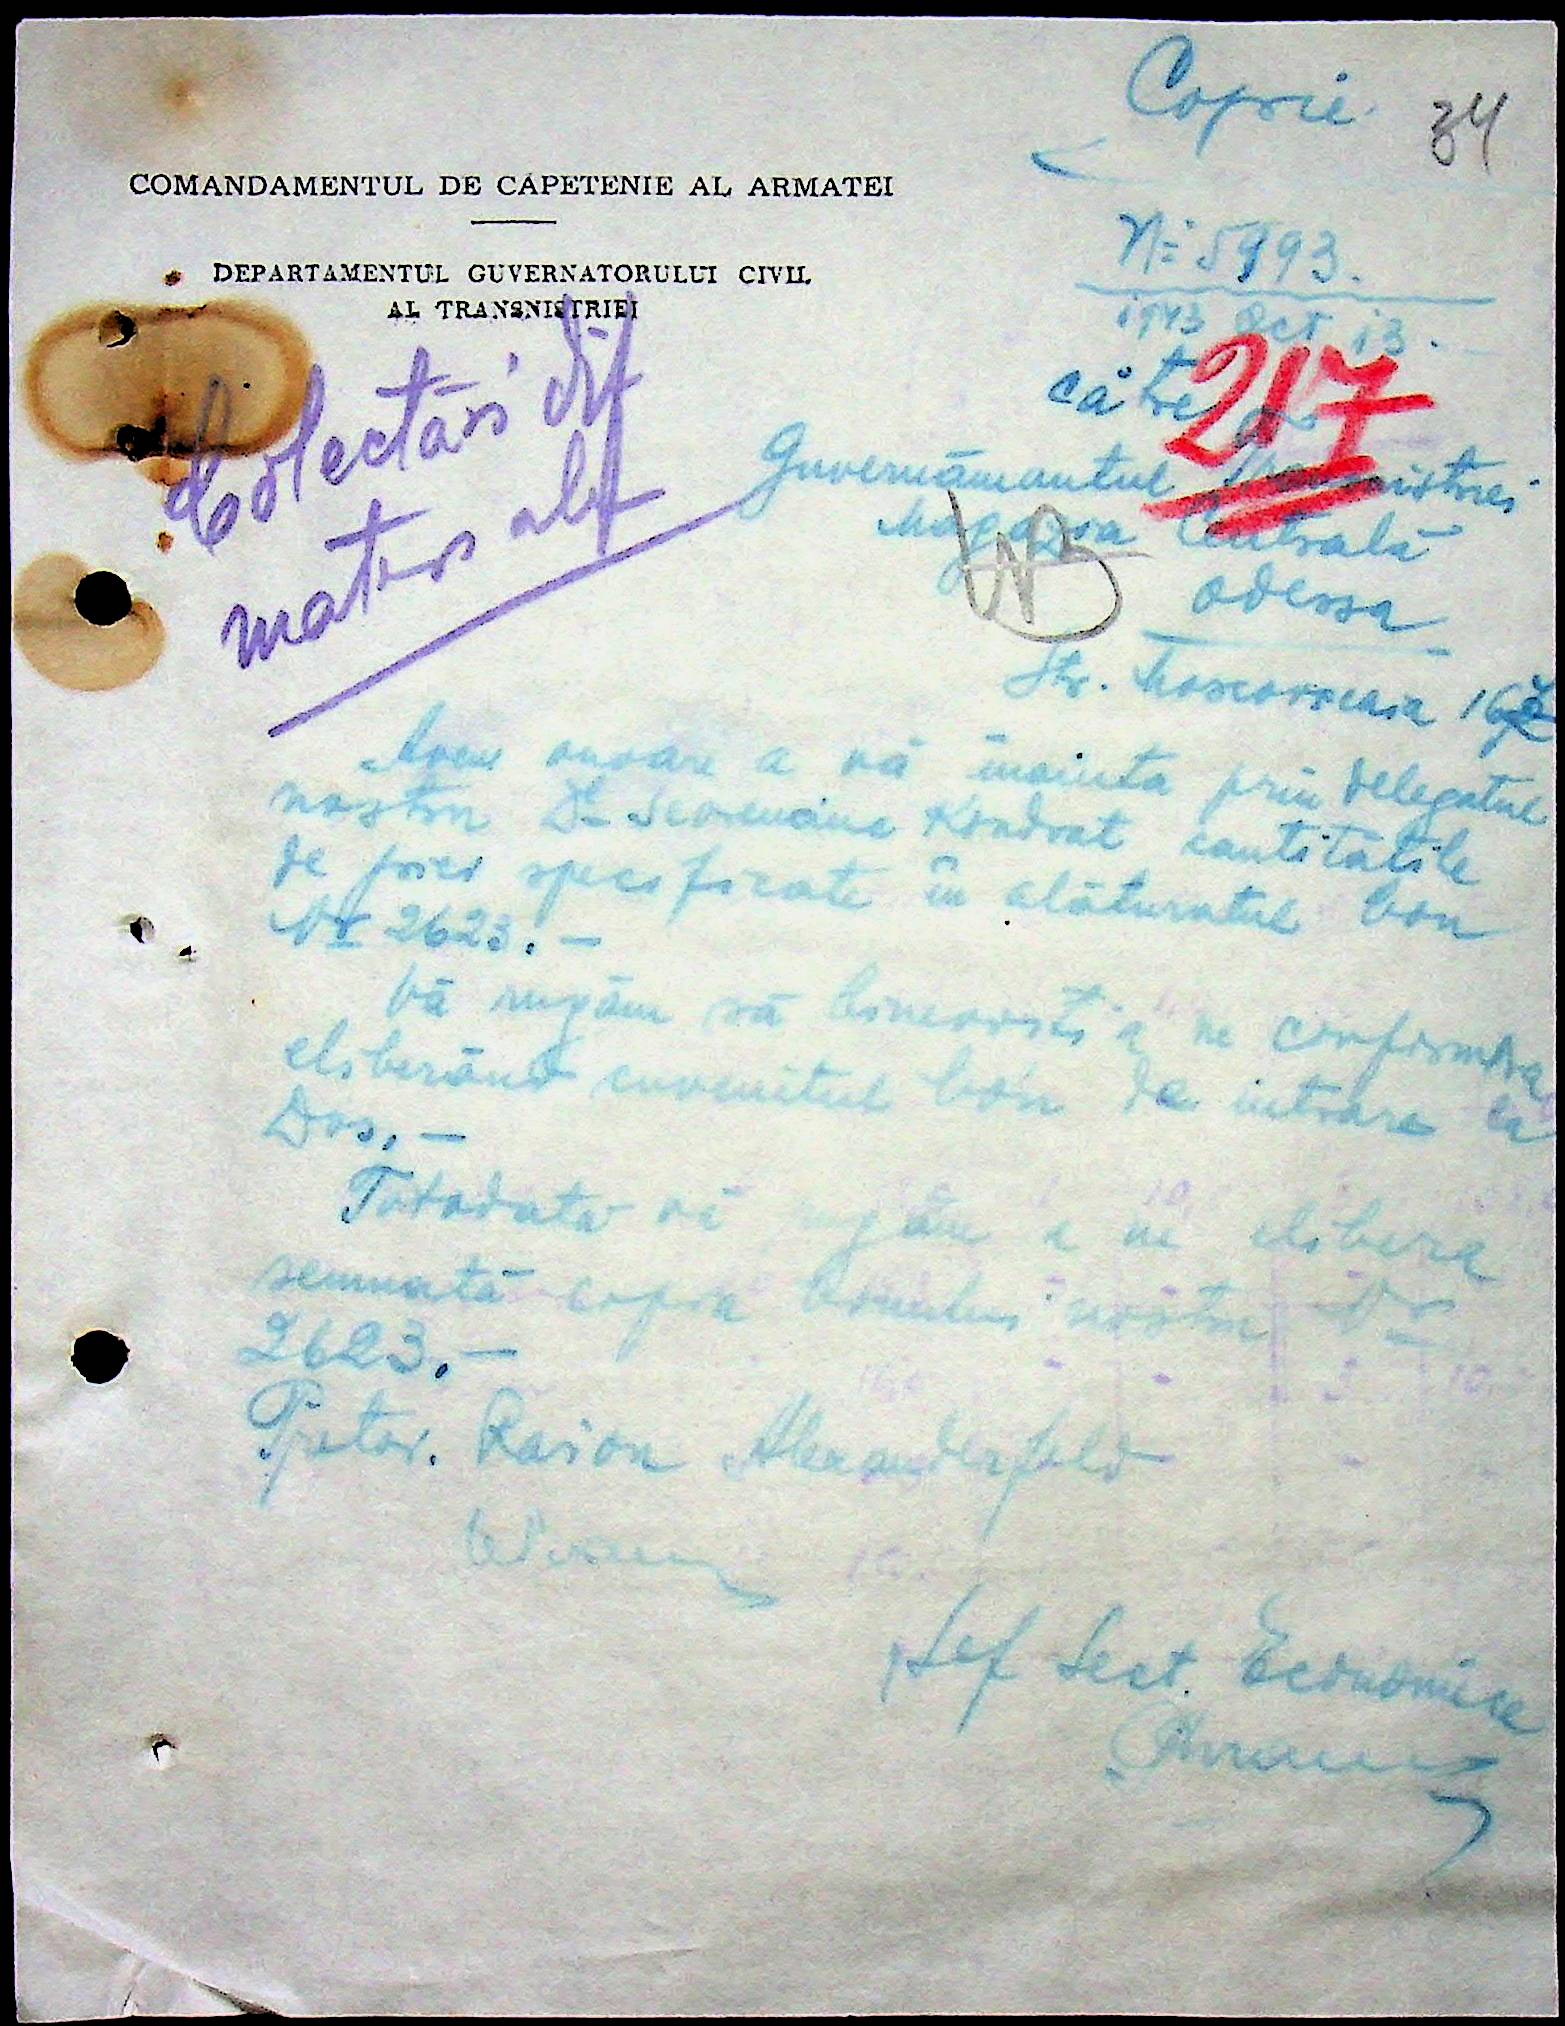 Copie
34
COMANDAMENTUL DE CAPETENIE AL ARMATEI
DEPARTAMENTUL GUVERNATORULUI CIVIL
AL TRANSNISTRIEI
No 5993.
1943 Oct 13.
217
către
Colectări dif
Guvernămantul Transnistriei
Magazia Centrală
Odessa
Str.
Avem onoare a vă inainta prin delegatul
nostru Dl Kondrat cantitatile
de specificate în alăturatul bon
Nr 2623.-
Vă rugăm să binevoiti a ne confirma
eliberând cuvenitul bon de intrare la
Dos.-
Totodata vă rugăm a ne elibera
semnată copia bonului nostru Nr
2623.-
Pretor. Raion Alexanderfeld
Șef Sect. Economice